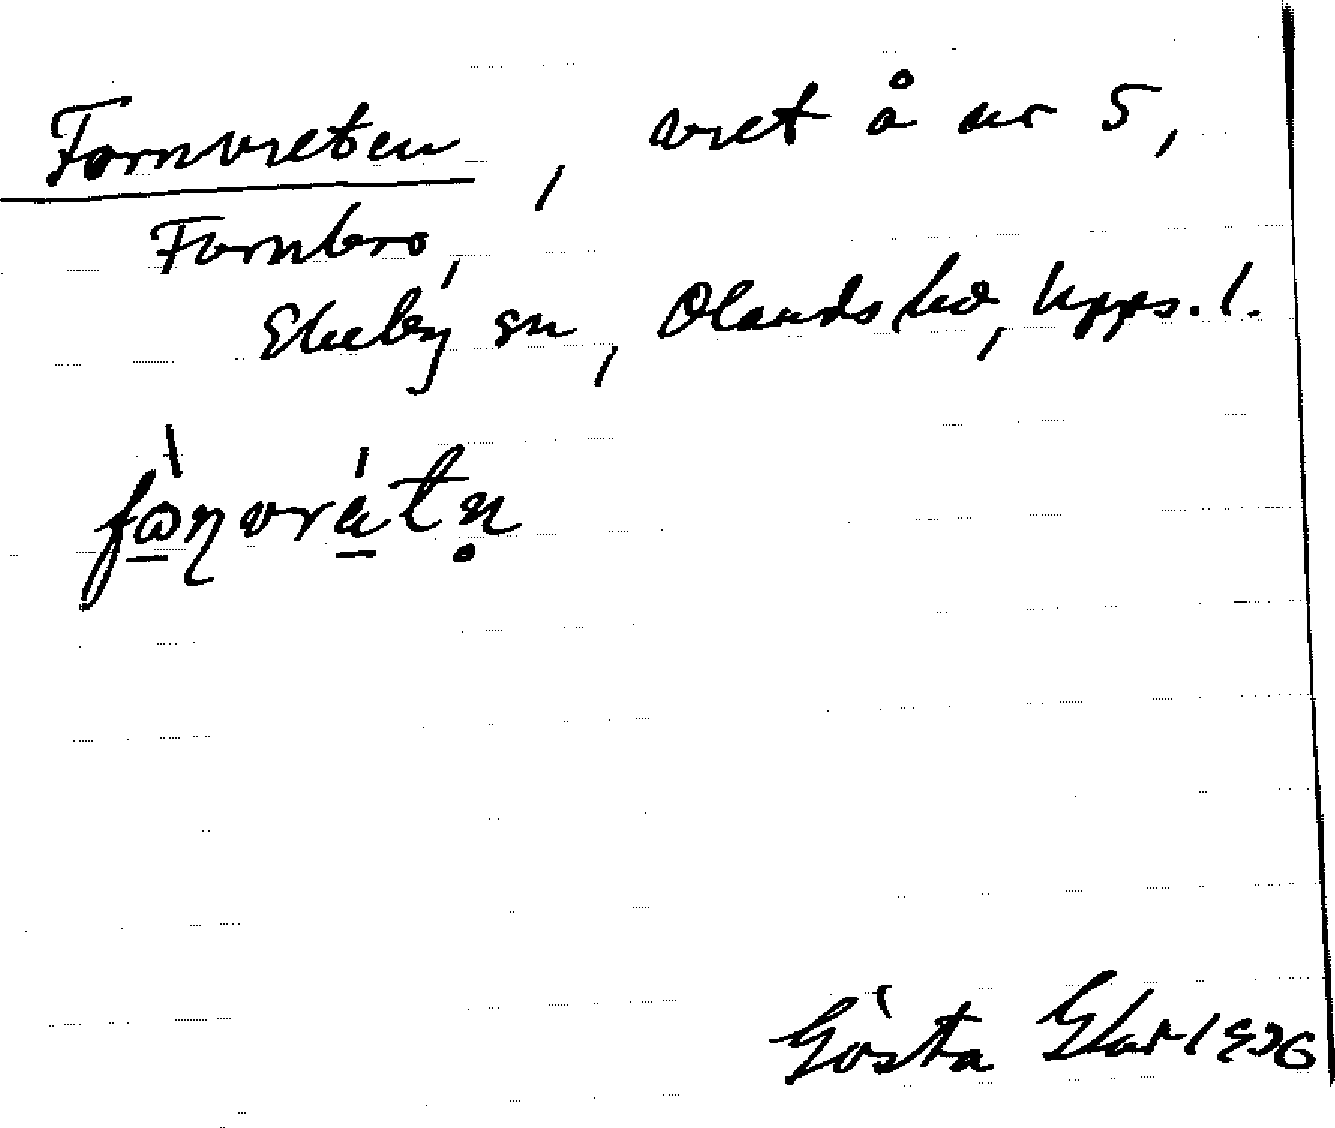 Fornvreten, vret å nr 5,
Fornbro,
Ekeby sn, Olands hd, Upps. l.
Gösta 1936